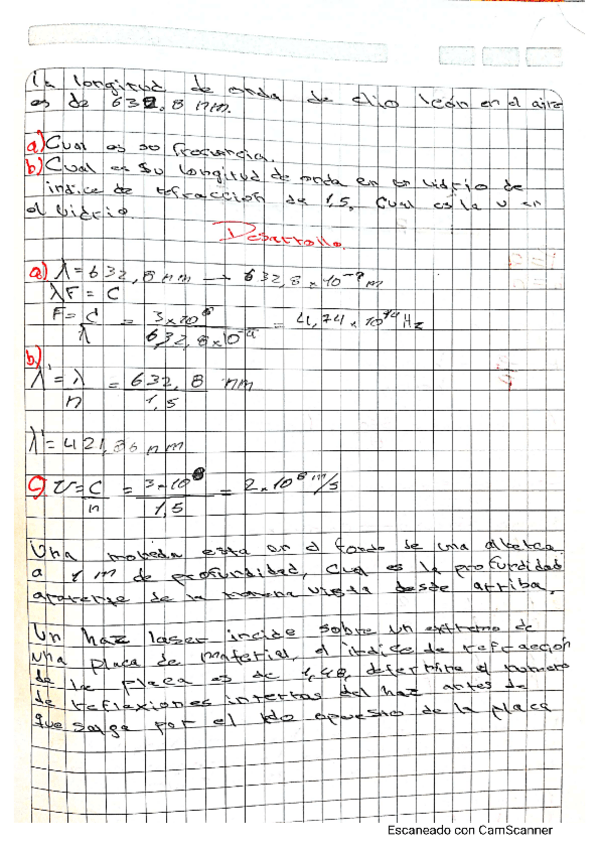 La longitud de onda de elio león en el aire
es de 632,8 nm.
a) Cual es su frecuencia.
b) Cual es su longitud de onda en un vidrio de
indice de refraccion de 1,5. Cual es la v en
el vidrio
Desarrollo.
a) λ = 632,8 nm → 632,8 × 10⁻⁹ m
λF = C
F = C/λ = 3 × 10⁸ / 632,8 × 10⁻⁹ = 4,74 × 10¹⁴ Hz
b)
λ' = λ/n = 632,8 nm / 1,5
λ' = 421,86 nm
c) v = C/n = 3 × 10⁸ / 1,5 = 2 × 10⁸ m/s
Una moneda esta en el fondo de una alberca
a 1 m de profundidad, cual es la profundidad
aparente de la moneda vista desde arriba.
Un haz laser incide sobre un extremo de
una placa de material, el indice de refraccion
de la placa es de 1,48, determine el numero
de reflexiones internas del haz antes de
que salga por el lado opuesto de la placa
Escaneado con CamScanner